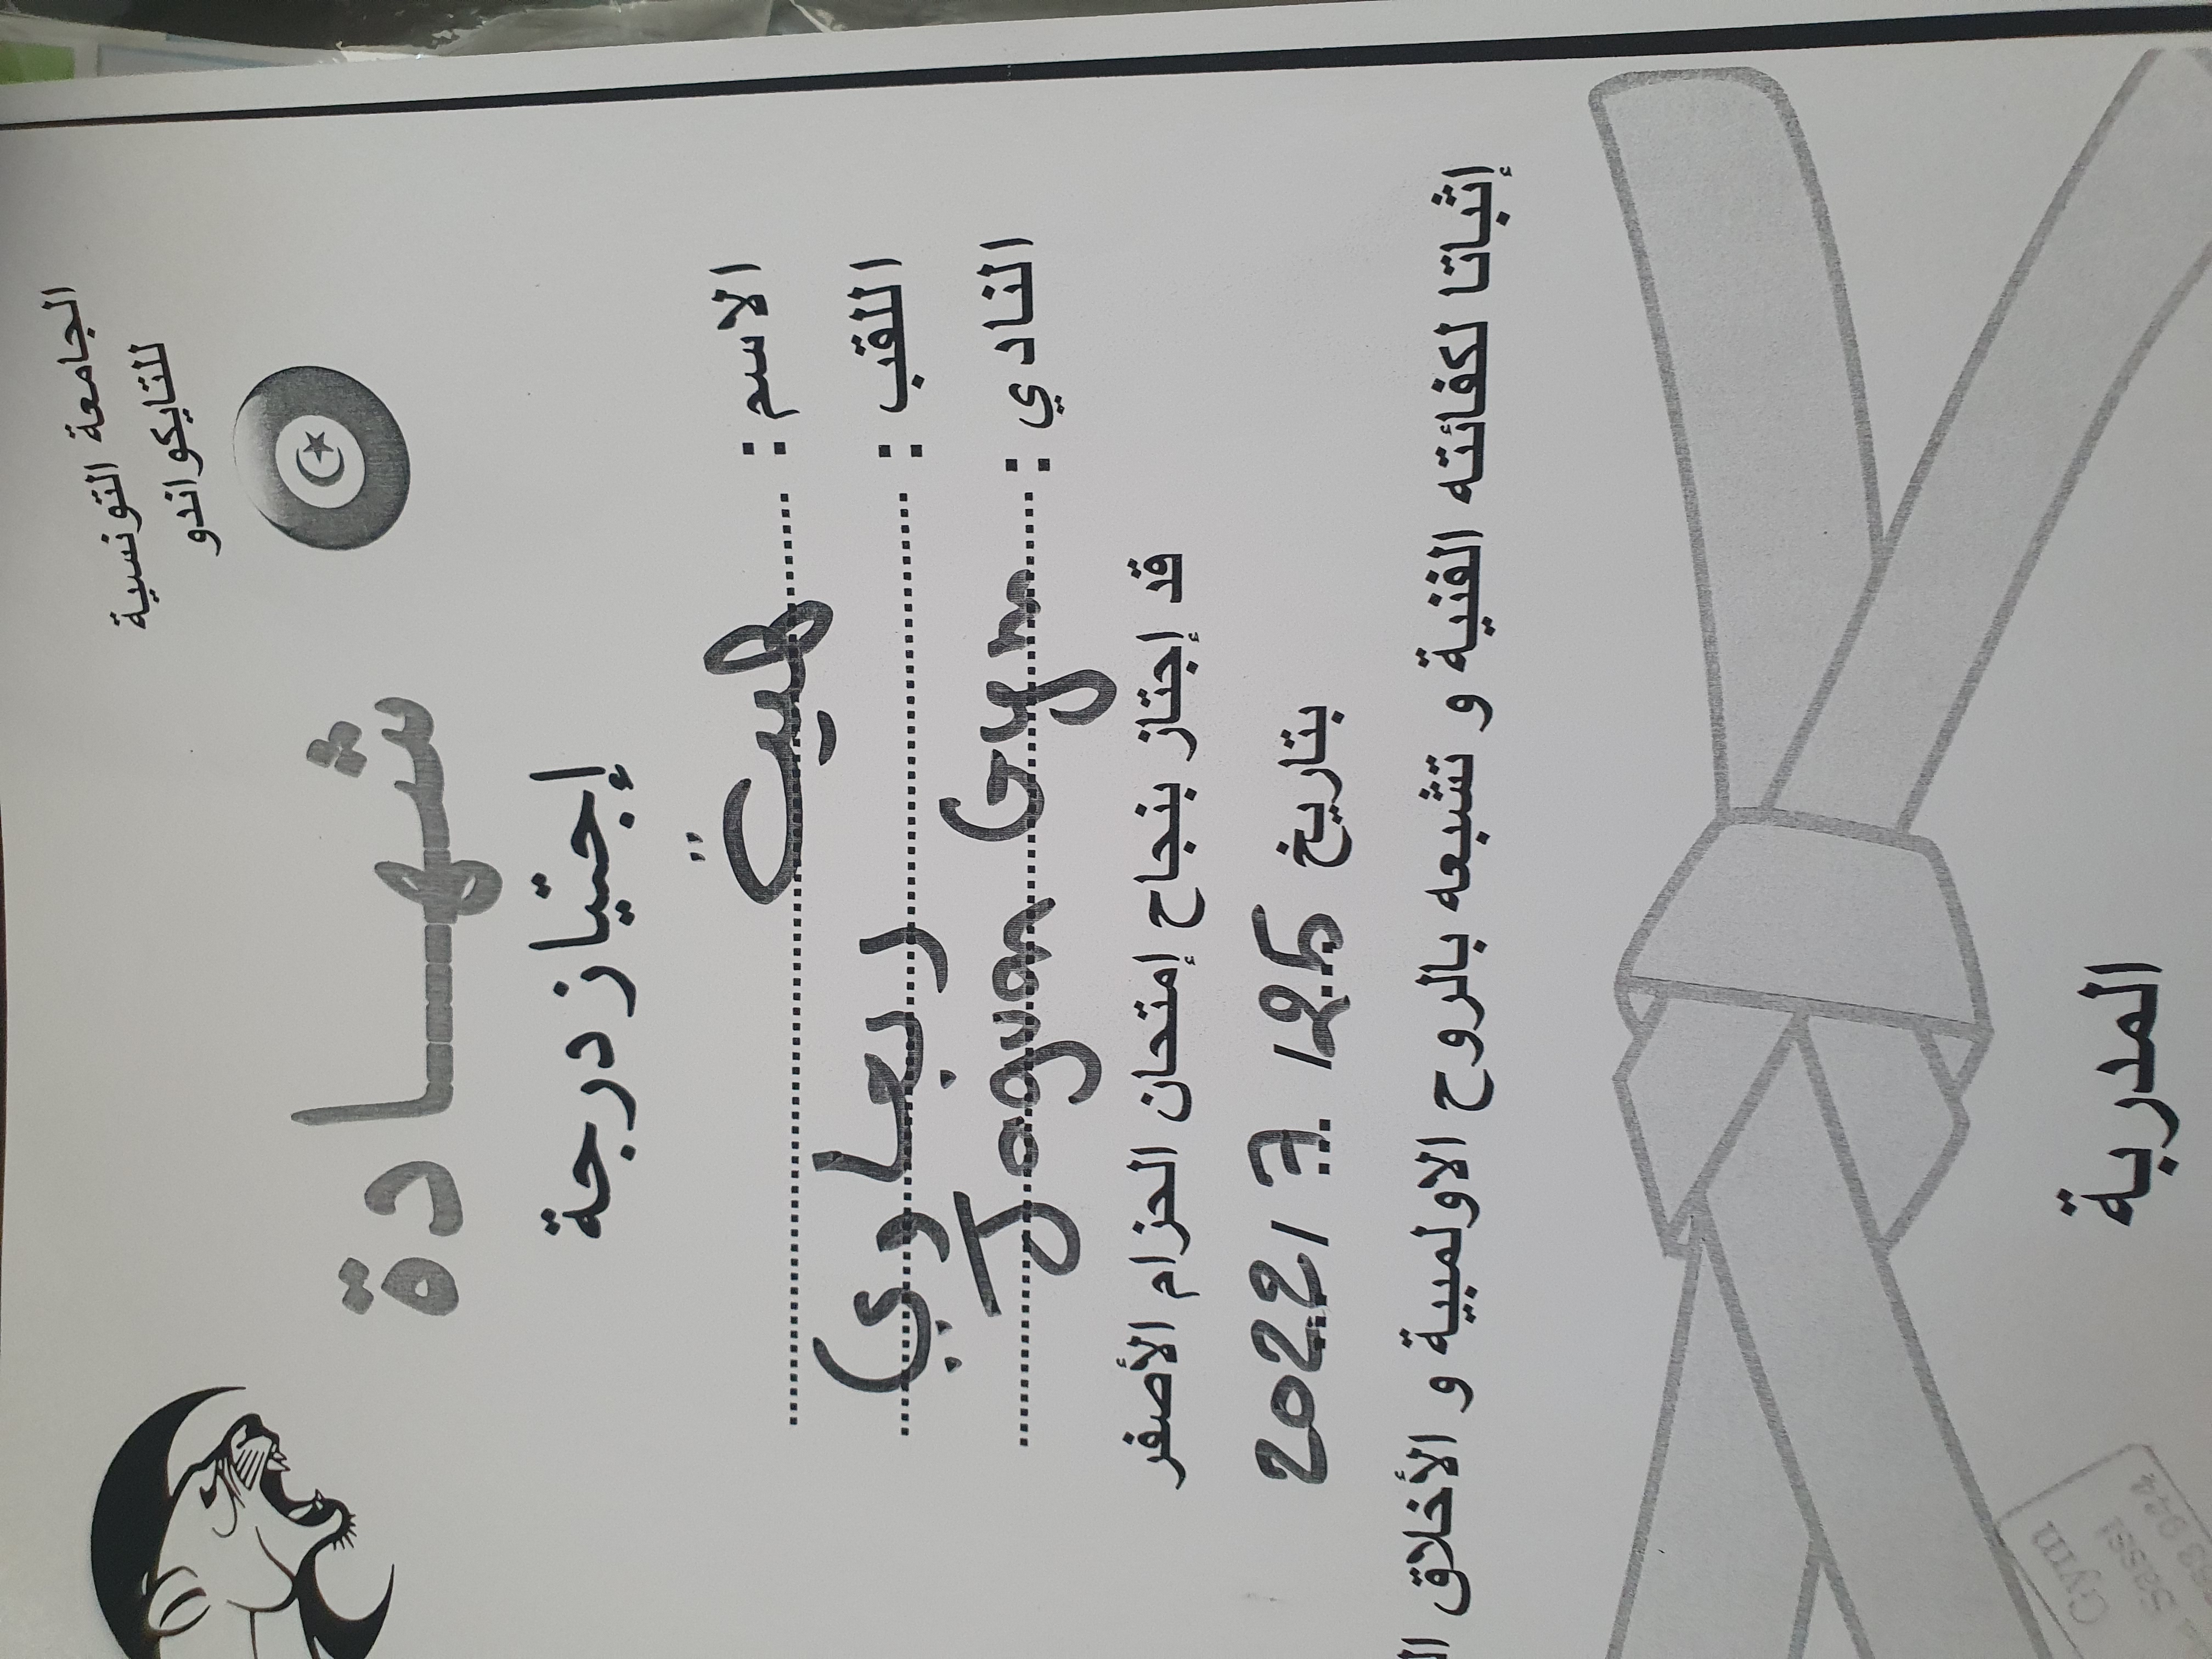 الجامعة التونسية
للتايكواندو
شهادة
إجتياز درجة
الاسم : هيت
اللقب : ربعاوي
النادي : Joguan Gym
قد إجتاز بنجاح إمتحان الحزام الأصفر
بتاريخ 25 / 7 / 2022
إثباتا لكفائته الفنية و تشبعه بالروح الاولمبية و الأخلاق
المدربة
Gym
Sassi